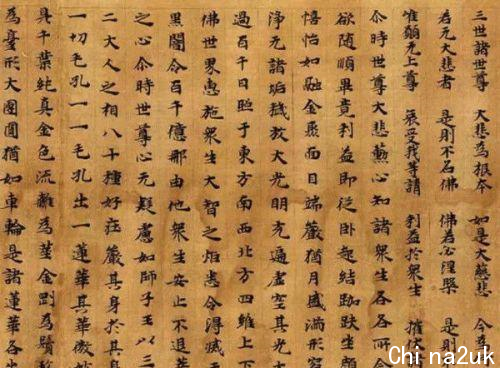 三世諸世尊 大悲為根本 如是大慈悲 今為
若无大悲者 是則不名佛 佛若必涅槃 是則
惟願无上尊 哀受我等請 利益於衆生 摧伏
尒時世尊大悲勳心知諸衆生各各所念
欲隨順畢竟利益即從卧起結跏趺坐顔
憘怡如融金聚面目端嚴猶月盛滿形容
淨无諸垢穢放大光明充遍虛空其光大
過百千日照于東方南西北方四維上下
佛世界惠施衆生大智之炬悉令得滅无
黑闇令百千億那由他衆生安止不退
之心尒時世尊心无疑慮如師子王以三
二大人之相八十種好莊嚴其身於其身
一切毛孔一一毛孔出一蓮華其華微妙
具千葉純真金色流離為莖金剛為鬚
為臺形大團圓猶如車輪是諸蓮華各出
Chi na2uk